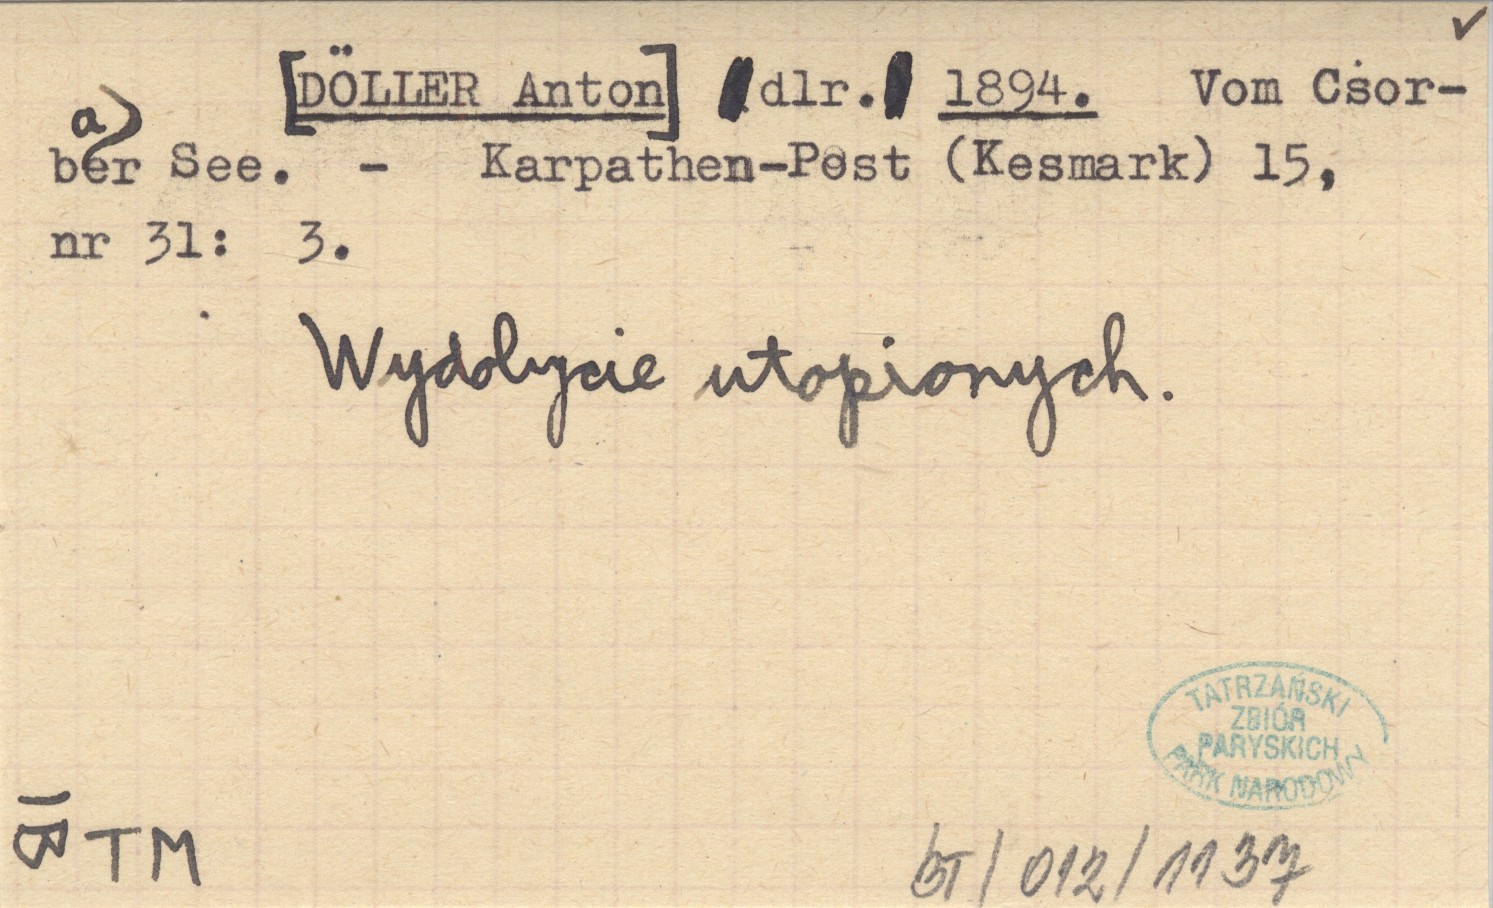 ✓
[DÖLLER Anton] dlr. 1894. Vom Csor-
a)
ber See. - Karpathen-Post (Kesmark) 15,
nr 31: 3.
Wydobycie utopionych.
TATRZAŃSKI
ZBIÓR
PARYSKICH
PARK NARODOWY
TM
BT/012/1137